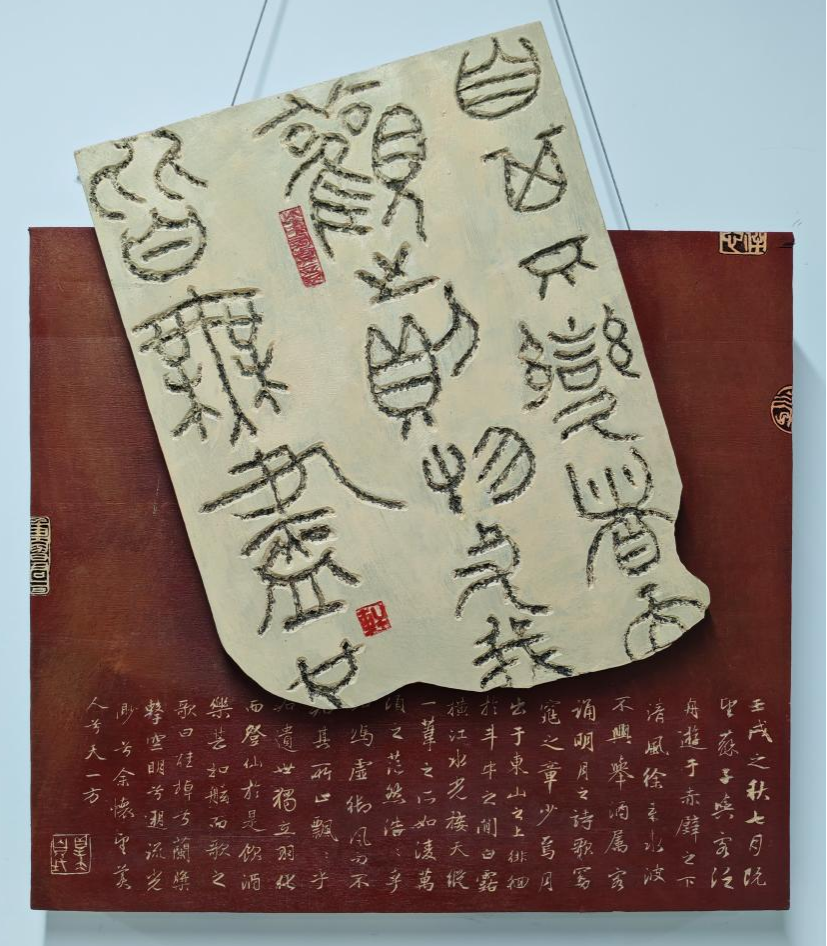 自其不變者而
觀之則物与我
皆無盡也
壬戌之秋七月既
望蘇子與客泛
舟遊于赤壁之下
清風徐來水波
不興舉酒属客
誦明月之詩歌窈
窕之章少焉月
出于東山之上徘徊
於斗牛之間白露
橫江水光接天縱
一葦之所如淩萬
頃之茫然浩々乎
如馮虛御風而不
知其所止飄々乎
如遺世獨立羽化
而登仙於是飲酒
樂甚扣舷而歌之
歌曰桂棹兮蘭槳
擊空明兮溯流光
渺兮余懷望美
人兮天一方